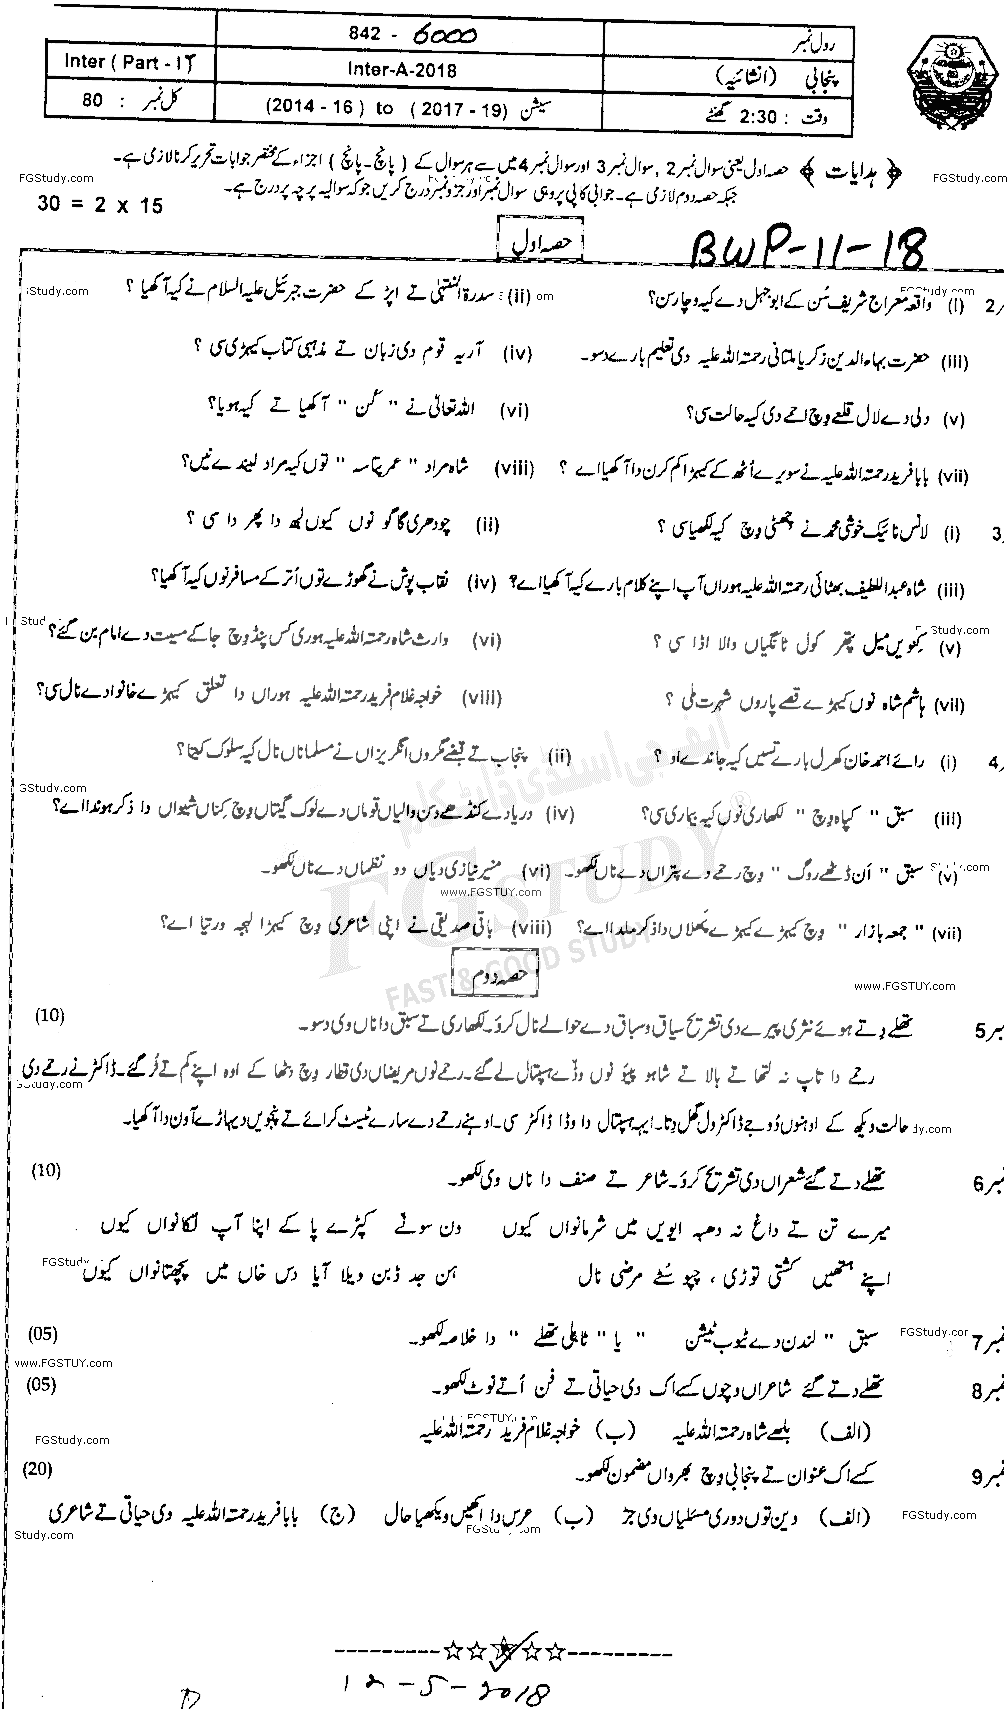 842 - 6000
رول نمبر
Inter ( Part - I
Inter-A-2018
پنجابی (انشائیہ)
کل نمبر : 80
سیشن (2014 - 16) to (2017 - 19)
وقت : 2:30 گھنٹے
﴿ ہدایات ﴾ حصہ اول یعنی سوال نمبر 2 , سوال نمبر 3 اور سوال نمبر 4 میں سے ہر سوال کے ( پانچ - پانچ ) اجزاء کے مختصر جوابات تحریر کرنا لازمی ہے۔
جبکہ حصہ دوم لازمی ہے۔ جوابی کاپی پر وہی سوال نمبر اور جزو نمبر درج کریں جو کہ سوالیہ پرچہ پر درج ہے۔
FGStudy.com
FGStudy.com
30 = 2 x 15
حصہ اول
BWP-11-18
2 (i) واقعہ معراج شریف سُن کے ابو جہل دے کیہ وچار سن؟ (ii) سدرۃ المنتہیٰ تے اپڑ کے حضرت جبرئیل علیہ السلام نے کیہ آکھیا ؟
(iii) حضرت بہاء الدین زکریا ملتانی رحمتہ اللہ علیہ دی تعلیم بارے دسو۔ (iv) آریہ قوم دی زبان تے مذہبی کتاب کیہڑی سی ؟
(v) دلی دے لال قلعے وچ احمے دی کیہ حالت سی؟ (vi) اللہ تعالیٰ نے " کُن " آکھیا تے کیہ ہویا؟
(vii) بابا فرید رحمتہ اللہ علیہ نے سویرے اُٹھ کے کیہڑا کم کرن دا آکھیا اے ؟ (viii) شاہ مراد " عمر پتاسہ " توں کیہ مراد لیندے نیں؟
3 (i) لانس نائیک خوشی محمد نے چٹھی وچ کیہ لکھیا سی ؟ (ii) چودھری گاگو نوں کیوں لبھ دا پھر دا سی ؟
(iii) شاہ عبداللطیف بھٹائی رحمتہ اللہ علیہ ہوراں آپ اپنے کلام بارے کیہ آکھیا اے؟ (iv) نقاب پوش نے گھوڑے توں اُتر کے مسافر نوں کیہ آکھیا؟
(v) کنویں میل پتھر کول تانگیاں والا اڈا سی ؟ (vi) وارث شاہ رحمتہ اللہ علیہ ہوری کس پنڈ وچ جا کے مسیت دے امام بن گئے؟
(vii) ہاشم شاہ نوں کیہڑے قصے پاروں شہرت ملی ؟ (viii) خواجہ غلام فرید رحمتہ اللہ علیہ ہوراں دا تعلق کیہڑے خانوادے نال سی؟
4 (i) رائے احمد خان کھرل بارے تسیں کیہ جاندے او ؟ (ii) پنجاب تے قبضے مگروں انگریزاں نے مسلماناں نال کیہ سلوک کیتا؟
(iii) سبق " کپاہ وچ " لکھاری نوں کیہ بیماری سی؟ (iv) دریا دے کنڈھے وسن والیاں قوماں دے لوک گیتاں وچ کِناں شیواں دا ذکر ہوندا اے؟
(v) سبق " اُن ڈٹھے روگ " وچ رحمے دے پتراں دے ناں لکھو۔ (vi) منیر نیازی دیاں دو نظماں دے ناں لکھو۔
www.FGSTUY.com
(vii) " جمعہ بازار " وچ کیہڑے کیہڑے پھلاں دا ذکر ملدا اے؟ (viii) باقی صدیقی نے اپنی شاعری وچ کیہڑا لہجہ ورتیا اے؟
ایف جی اسٹڈی ڈاٹ کام
FGSTUDY
FAST & GOOD STUDY
حصہ دوم
www.FGSTUY.com
نمبر 5 تھلے دتے ہوئے نثری پیرے دی تشریح سیاق و سباق دے حوالے نال کرو۔ لکھاری تے سبق دا ناں وی دسو۔ (10)
رحمے دا تاپ نہ لتھا تے بالا تے شاہو پیو نوں وڈے ہسپتال لے گئے۔ رحمے نوں مریضاں دی قطار وچ بٹھا کے اوہ اپنے کم تے ٹُر گئے۔ ڈاکٹر نے رحمے دی
حالت ویکھ کے اوہنوں دُوجے ڈاکٹر ول گھل دِتا۔ ایہہ ہسپتال دا وڈا ڈاکٹر سی۔ اوہنے رحمے دے سارے ٹیسٹ کرائے تے پنجویں دیہاڑے آون دا آکھیا۔
نمبر 6 تھلے دتے گئے شعراں دی تشریح کرو۔ شاعر تے صنف دا ناں وی لکھو۔ (10)
میرے تن تے داغ نہ دھبہ ایویں میں شرمانواں کیوں دن سونے کپڑے پا کے اپنا آپ لکانواں کیوں
اپنے ہتھیں کشتی توڑی ، چپو سُٹے مرضی نال ہن جد ڈبن ویلا آیا دس خاں میں پچھتانواں کیوں
FGStudy
نمبر 7 سبق " لندن دے ٹیوب ٹیشن " یا " ٹاہلی تھلے " دا خلاصہ لکھو۔ (05)
www.FGSTUY.com
نمبر 8 تھلے دتے گئے شاعراں وچوں کسے اک دی حیاتی تے فن اُتے نوٹ لکھو۔ (05)
(الف) بلھے شاہ رحمتہ اللہ علیہ (ب) خواجہ غلام فرید رحمتہ اللہ علیہ
FGStudy.com
نمبر 9 کسے اک عنوان تے پنجابی وچ بھرواں مضمون لکھو۔ (20)
(الف) دین توں دوری مسئلیاں دی جڑ (ب) عرس دا اکھیں ویکھیا حال (ج) بابا فرید رحمتہ اللہ علیہ دی حیاتی تے شاعری
FGStudy.com
12-5-2018